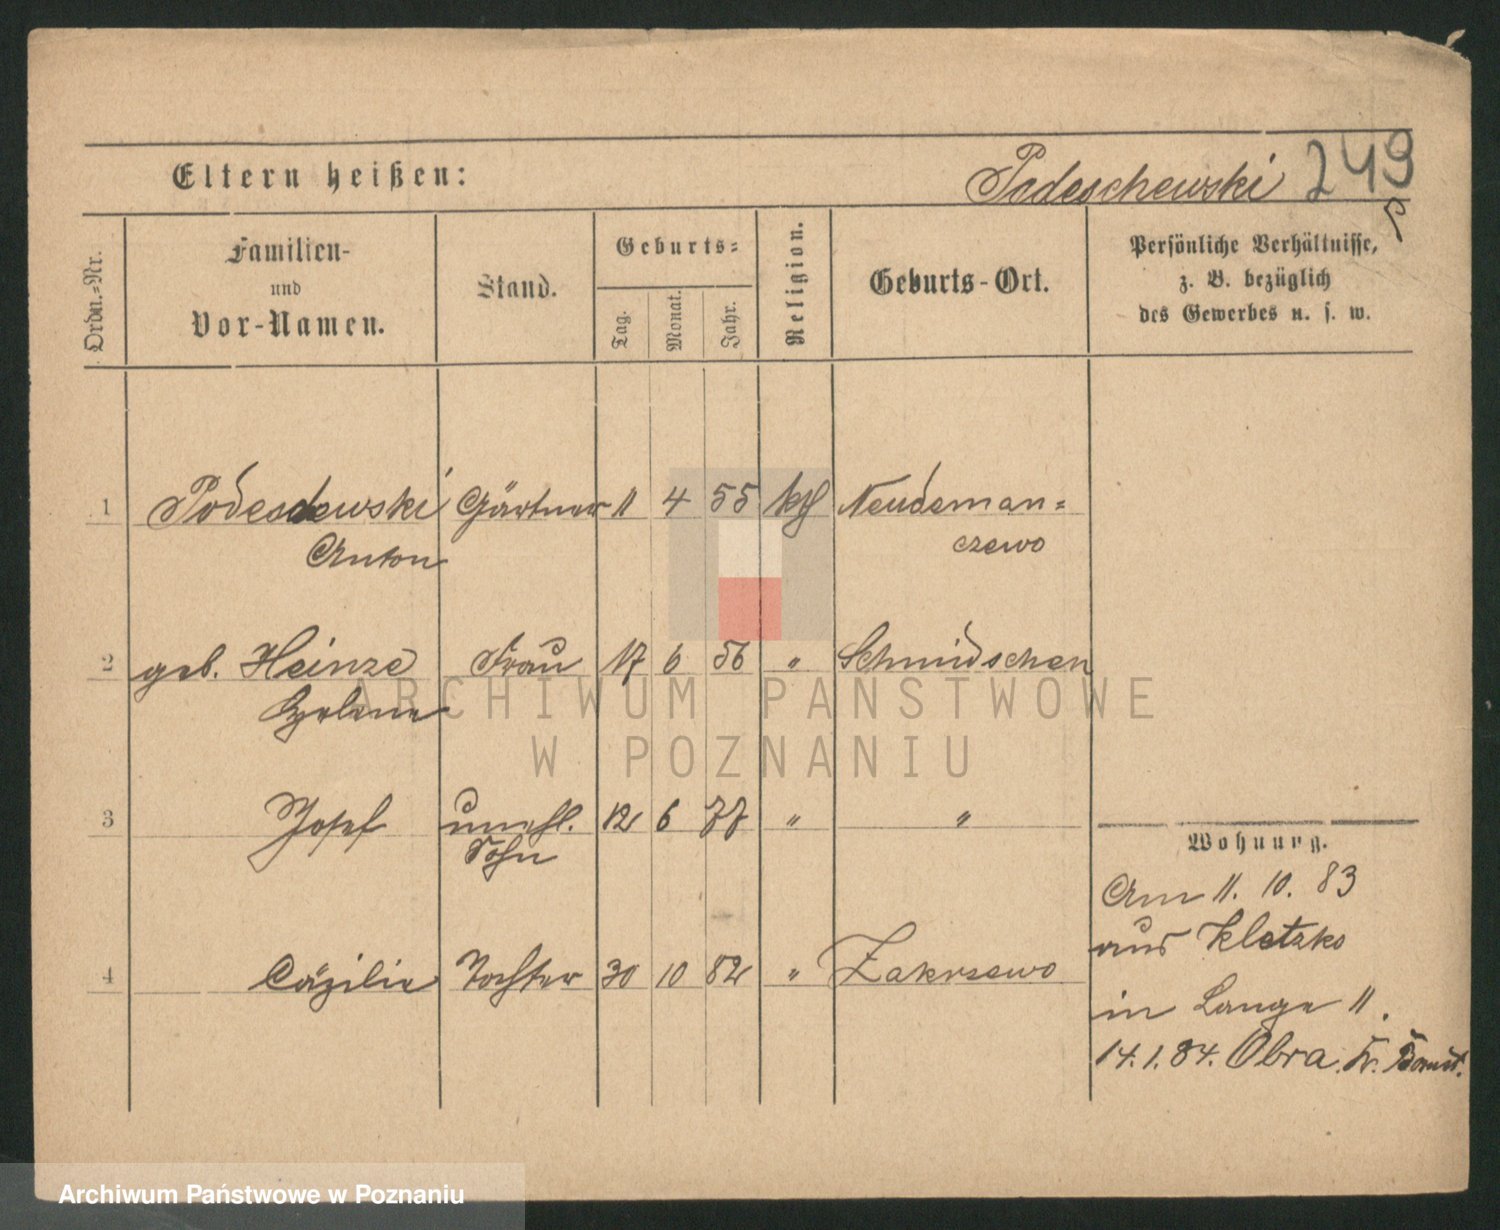 Eltern heißen:
Podeschewski 249
Ordn.-Nr.
Familien-
und
Vor-Namen.
Stand.
Geburts-
Tag.
Monat.
Jahr.
Religion.
Geburts-Ort.
Persönliche Verhältnisse,
z. B. bezüglich
des Gewerbes u. s. w.
1 Podeschewski Gärtner 11 4 55 kth Neudeman=
Anton czewo
2 geb. Heinze Frau 17 6 56 " Schmidschen
Helene
3 Josef unehl. 12 6 77 " "
Sohn
4 Cäzilie Tochter 30 10 82 " Zakrzewo
Wohnung.
Am 11. 10. 83
aus Kletzko
in Lange 11.
14. 1. 84. Obra. Kr. Bomst.
ARCHIWUM PAŃSTWOWE
W POZNANIU
Archiwum Państwowe w Poznaniu